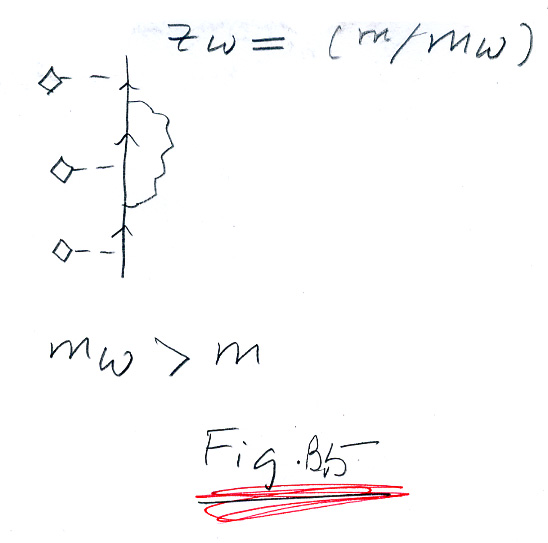 zw = (m/mw)
mw > m
Fig. B5